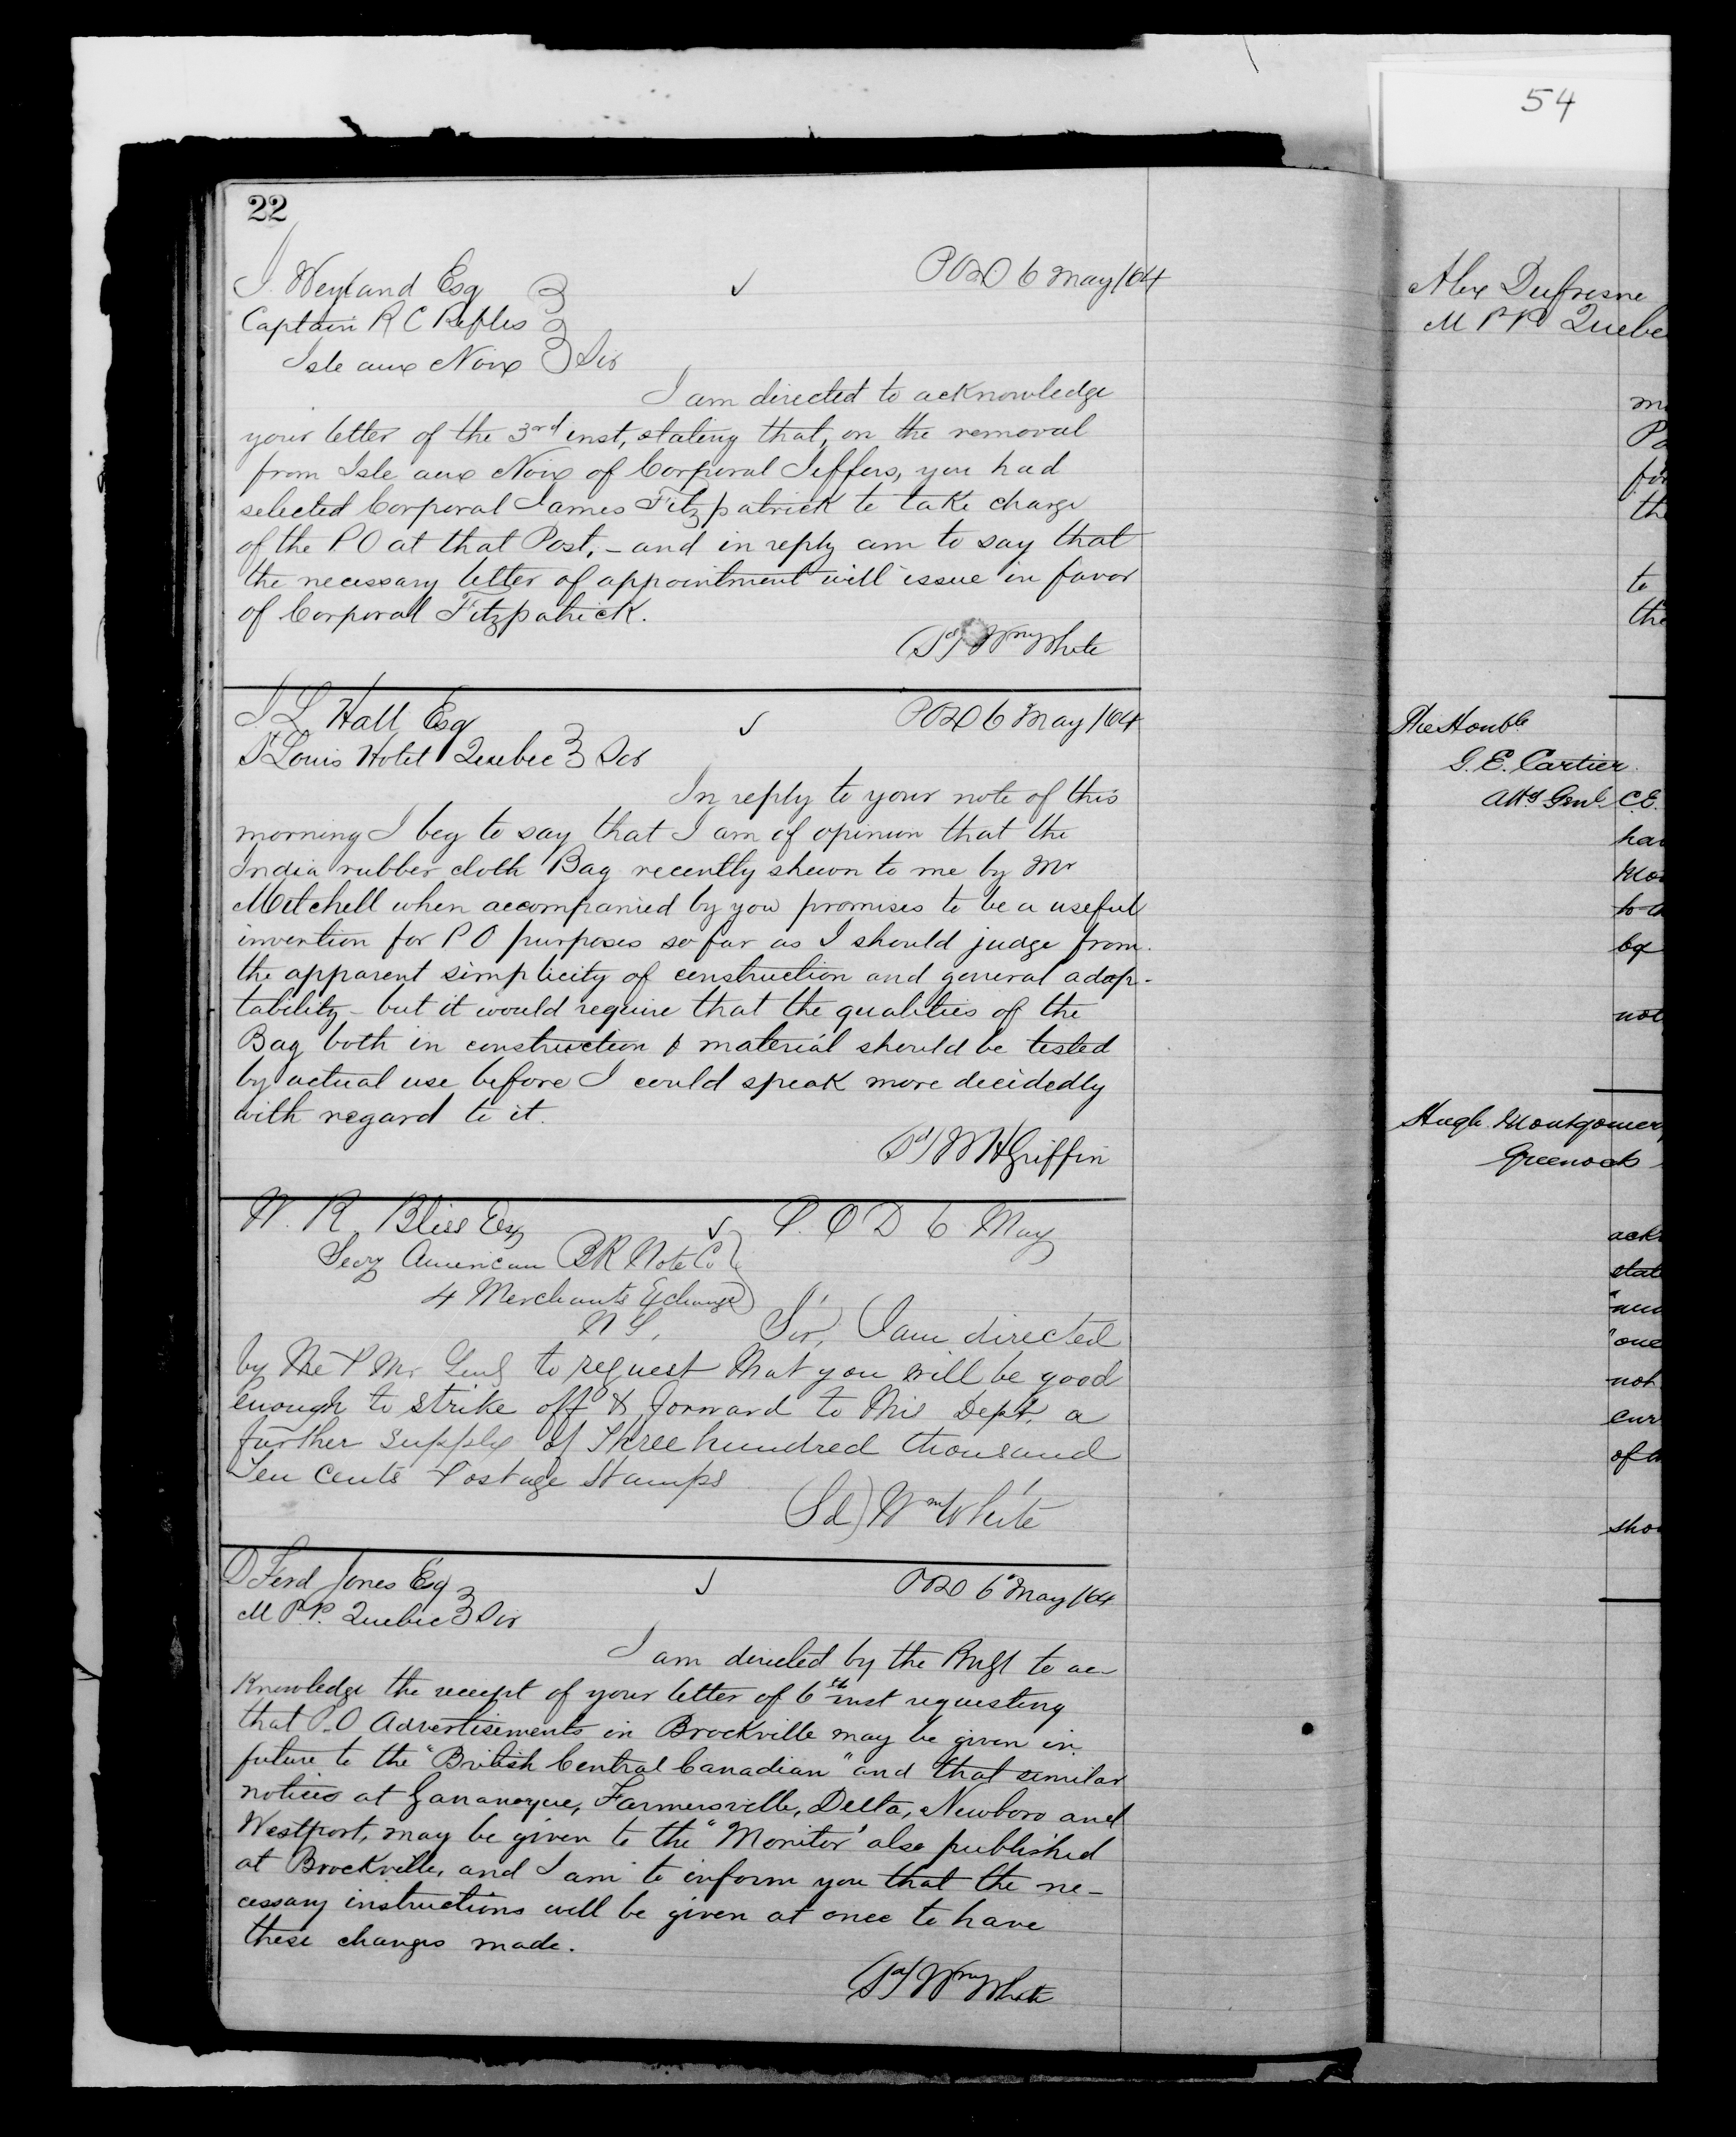 54
22
J. Weyland Esq
Captain R C Rifles
Isle aux Noix Sir
POD 6 May /64
I am directed to acknowledge
your letter of the 3rd inst, stating that, on the removal
from Isle aux Noix of Corporal Jeffers, you had
selected Corporal James Fitzpatrick to take charge
of the P O at that Post, - and in reply am to say that
the necessary letter of appointment will issue in favor
of Corporal Fitzpatrick.
(Sd) Wm White
J L Hall Esq
St Louis Hotel Quebec Sir
POD 6 May /64
In reply to your note of this
morning I beg to say that I am of opinion that the
India rubber cloth Bag recently shewn to me by Mr
Mitchell when accompanied by you promises to be a useful
invention for P O purposes so far as I should judge from
the apparent simplicity of construction and general adap-
tability - but it would require that the qualities of the
Bag both in construction & material should be tested
by actual use before I could speak more decidedly
with regard to it.
(Sd) W H Griffin
W. R. Bliss Esq
Secy American BK Note Co
4 Merchants Echange
N Y,
P. O D 6 May
Sir, I am directed
by the P Mr Genl to request that you will be good
enough to strike off & forward to this Dept. a
further supply of Three hundred thousand
Ten Cents Postage Stamps
(Sd) Wm White
D Ferd Jones Esq
M P.P. Quebec Sir
POD 6 May /64
I am directed by the PMGl to ac-
knowledge the receipt of your letter of 6th inst requesting
that P.O Advertisements in Brockville may be given in
future to the "British Central Canadian" and that similar
notices at Gananoque, Farmersville, Delta, Newboro and
Westport, may be given to the "Monitor" also published
at Brockville, and I am to inform you that the ne-
cessary instructions will be given at once to have
these changes made.
(Sd) Wm White
Alex Dufresne
M P P Quebe
for
the
to
the
The Honble
G. E. Cartier
Atty Genl C.E.
not
Hugh Montgomery
Greenock
not